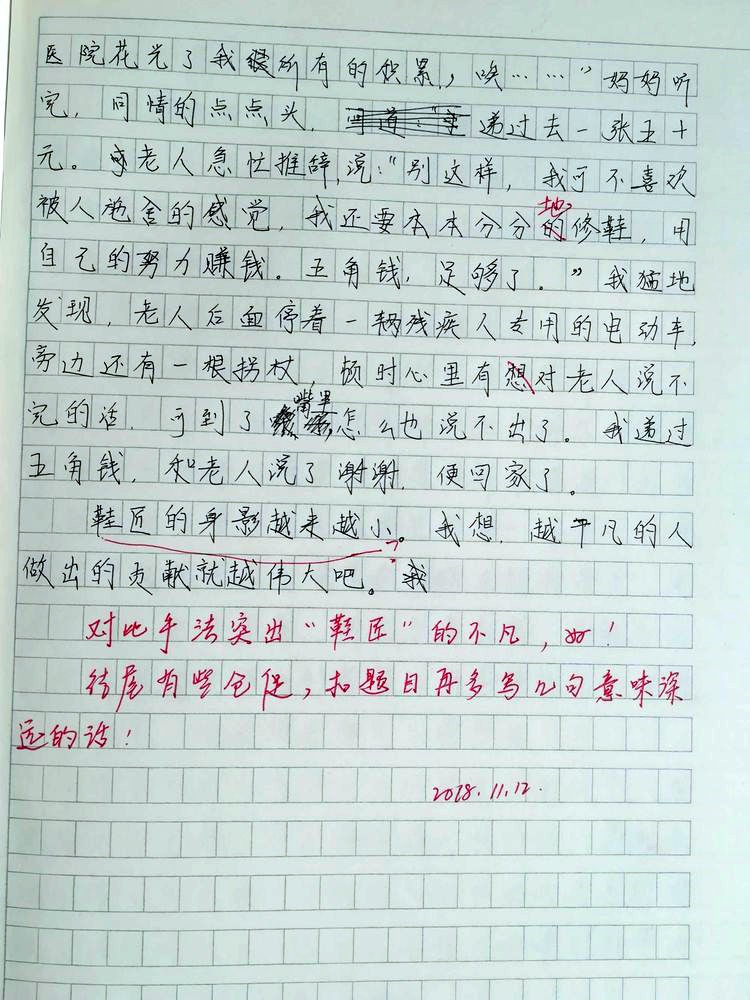 医院花光了我所有的积累，唉……”妈妈听
完，同情的点点头，递过去一张五十
元。老人急忙推辞，说：“别这样，我可不喜欢
被人施舍的感觉，我还要本本分分地修鞋，用
自己的努力赚钱。五角钱，足够了。”我猛地
发现，老人后面停着一辆残疾人专用的电动车，
旁边还有一根拐杖，顿时心里有想对老人说不
完的话，可到了嘴里怎么也说不出了。我递过
五角钱，和老人说了谢谢，便回家了。
鞋匠的身影越来越小。我想，越平凡的人
做出的贡献就越伟大吧。我
对比手法突出“鞋匠”的不凡，好！
结尾有些仓促，扣题目再多写几句意味深
远的话！
2018.11.12.